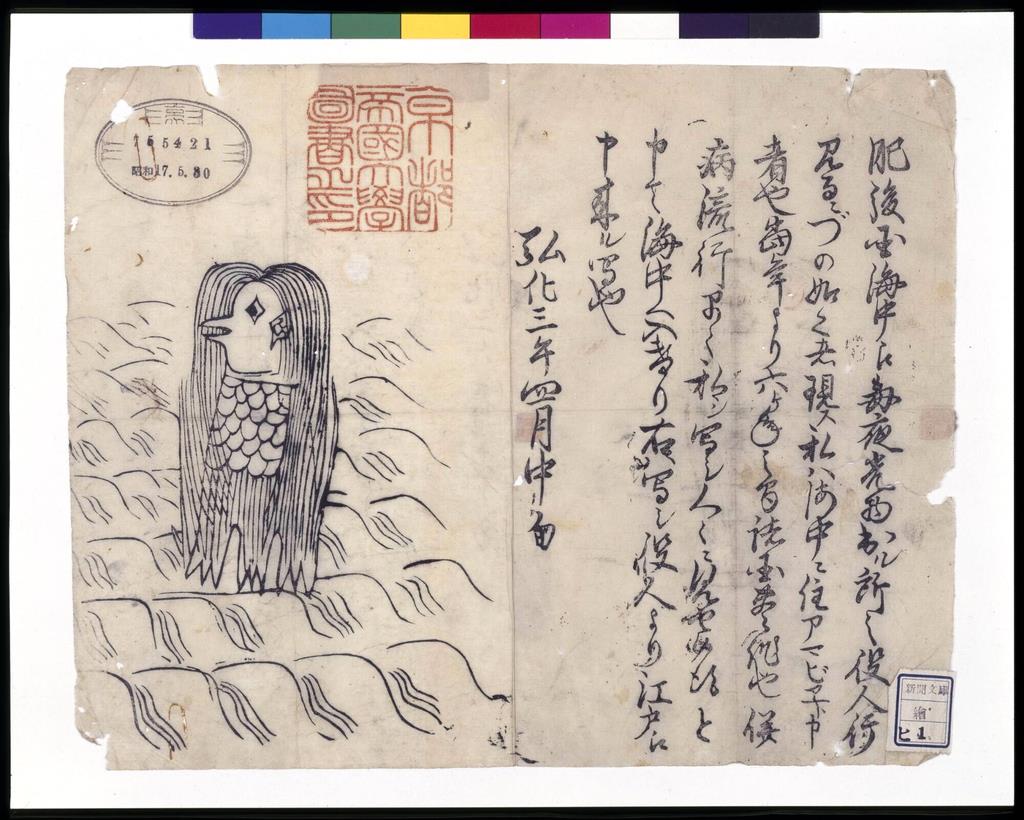 肥後国海中江毎夜光物出ル所之役人行
見るニづの如く者現ス私ハ海中ニ住アマビヱト申
者也当年より六ヶ年之間諸国豊作也併
病流行早々私シ写シ人々ニ見せ候得と
申て海中へ入けり右写シ役人より江戸江
申来ル写也
弘化三年四月中旬
京都
帝國大學
圖書之印
昭和17.5.30
新聞文庫
繪
ヒ 1.